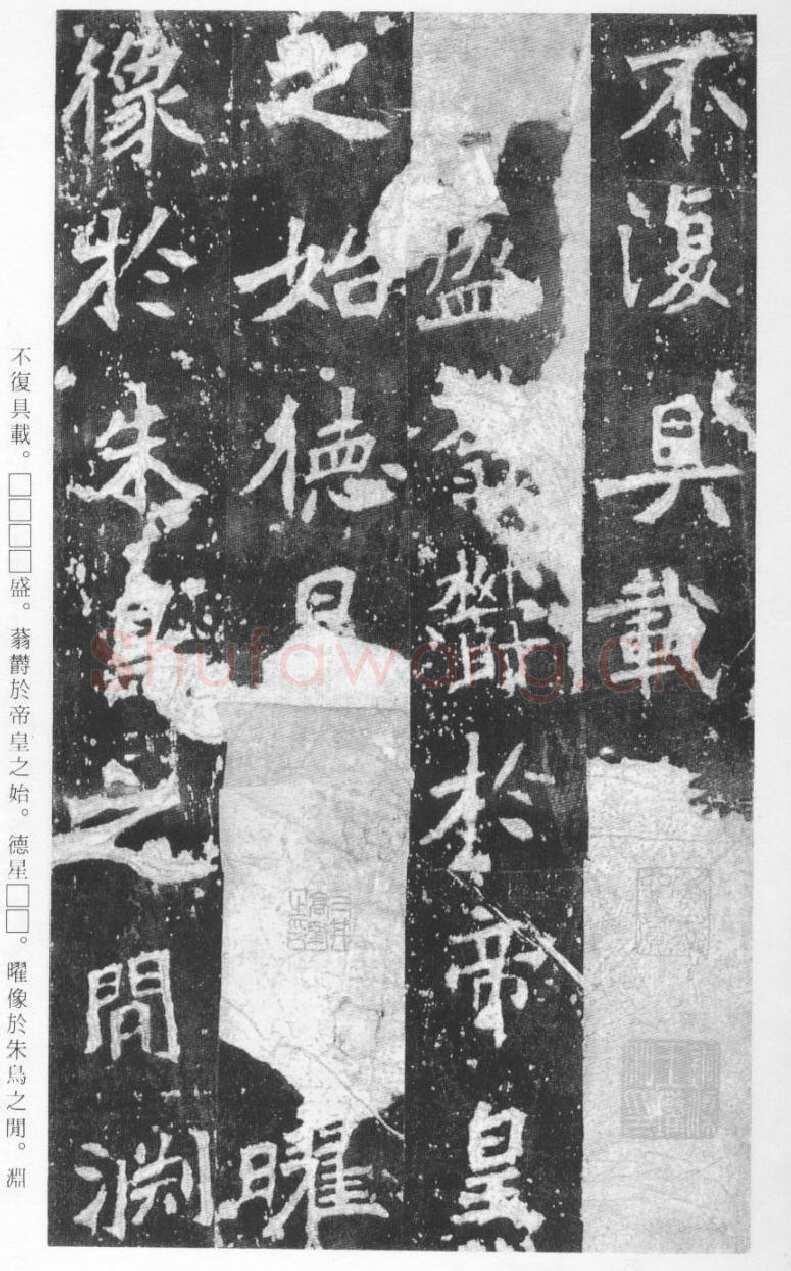 不復具載
盛蓊欝於帝皇
之始德星曜
像於朱鳥之間淵
不復具載。□□□□盛。蓊欝於帝皇之始。德星□□。曜像於朱鳥之閒。淵
shufawang.cn